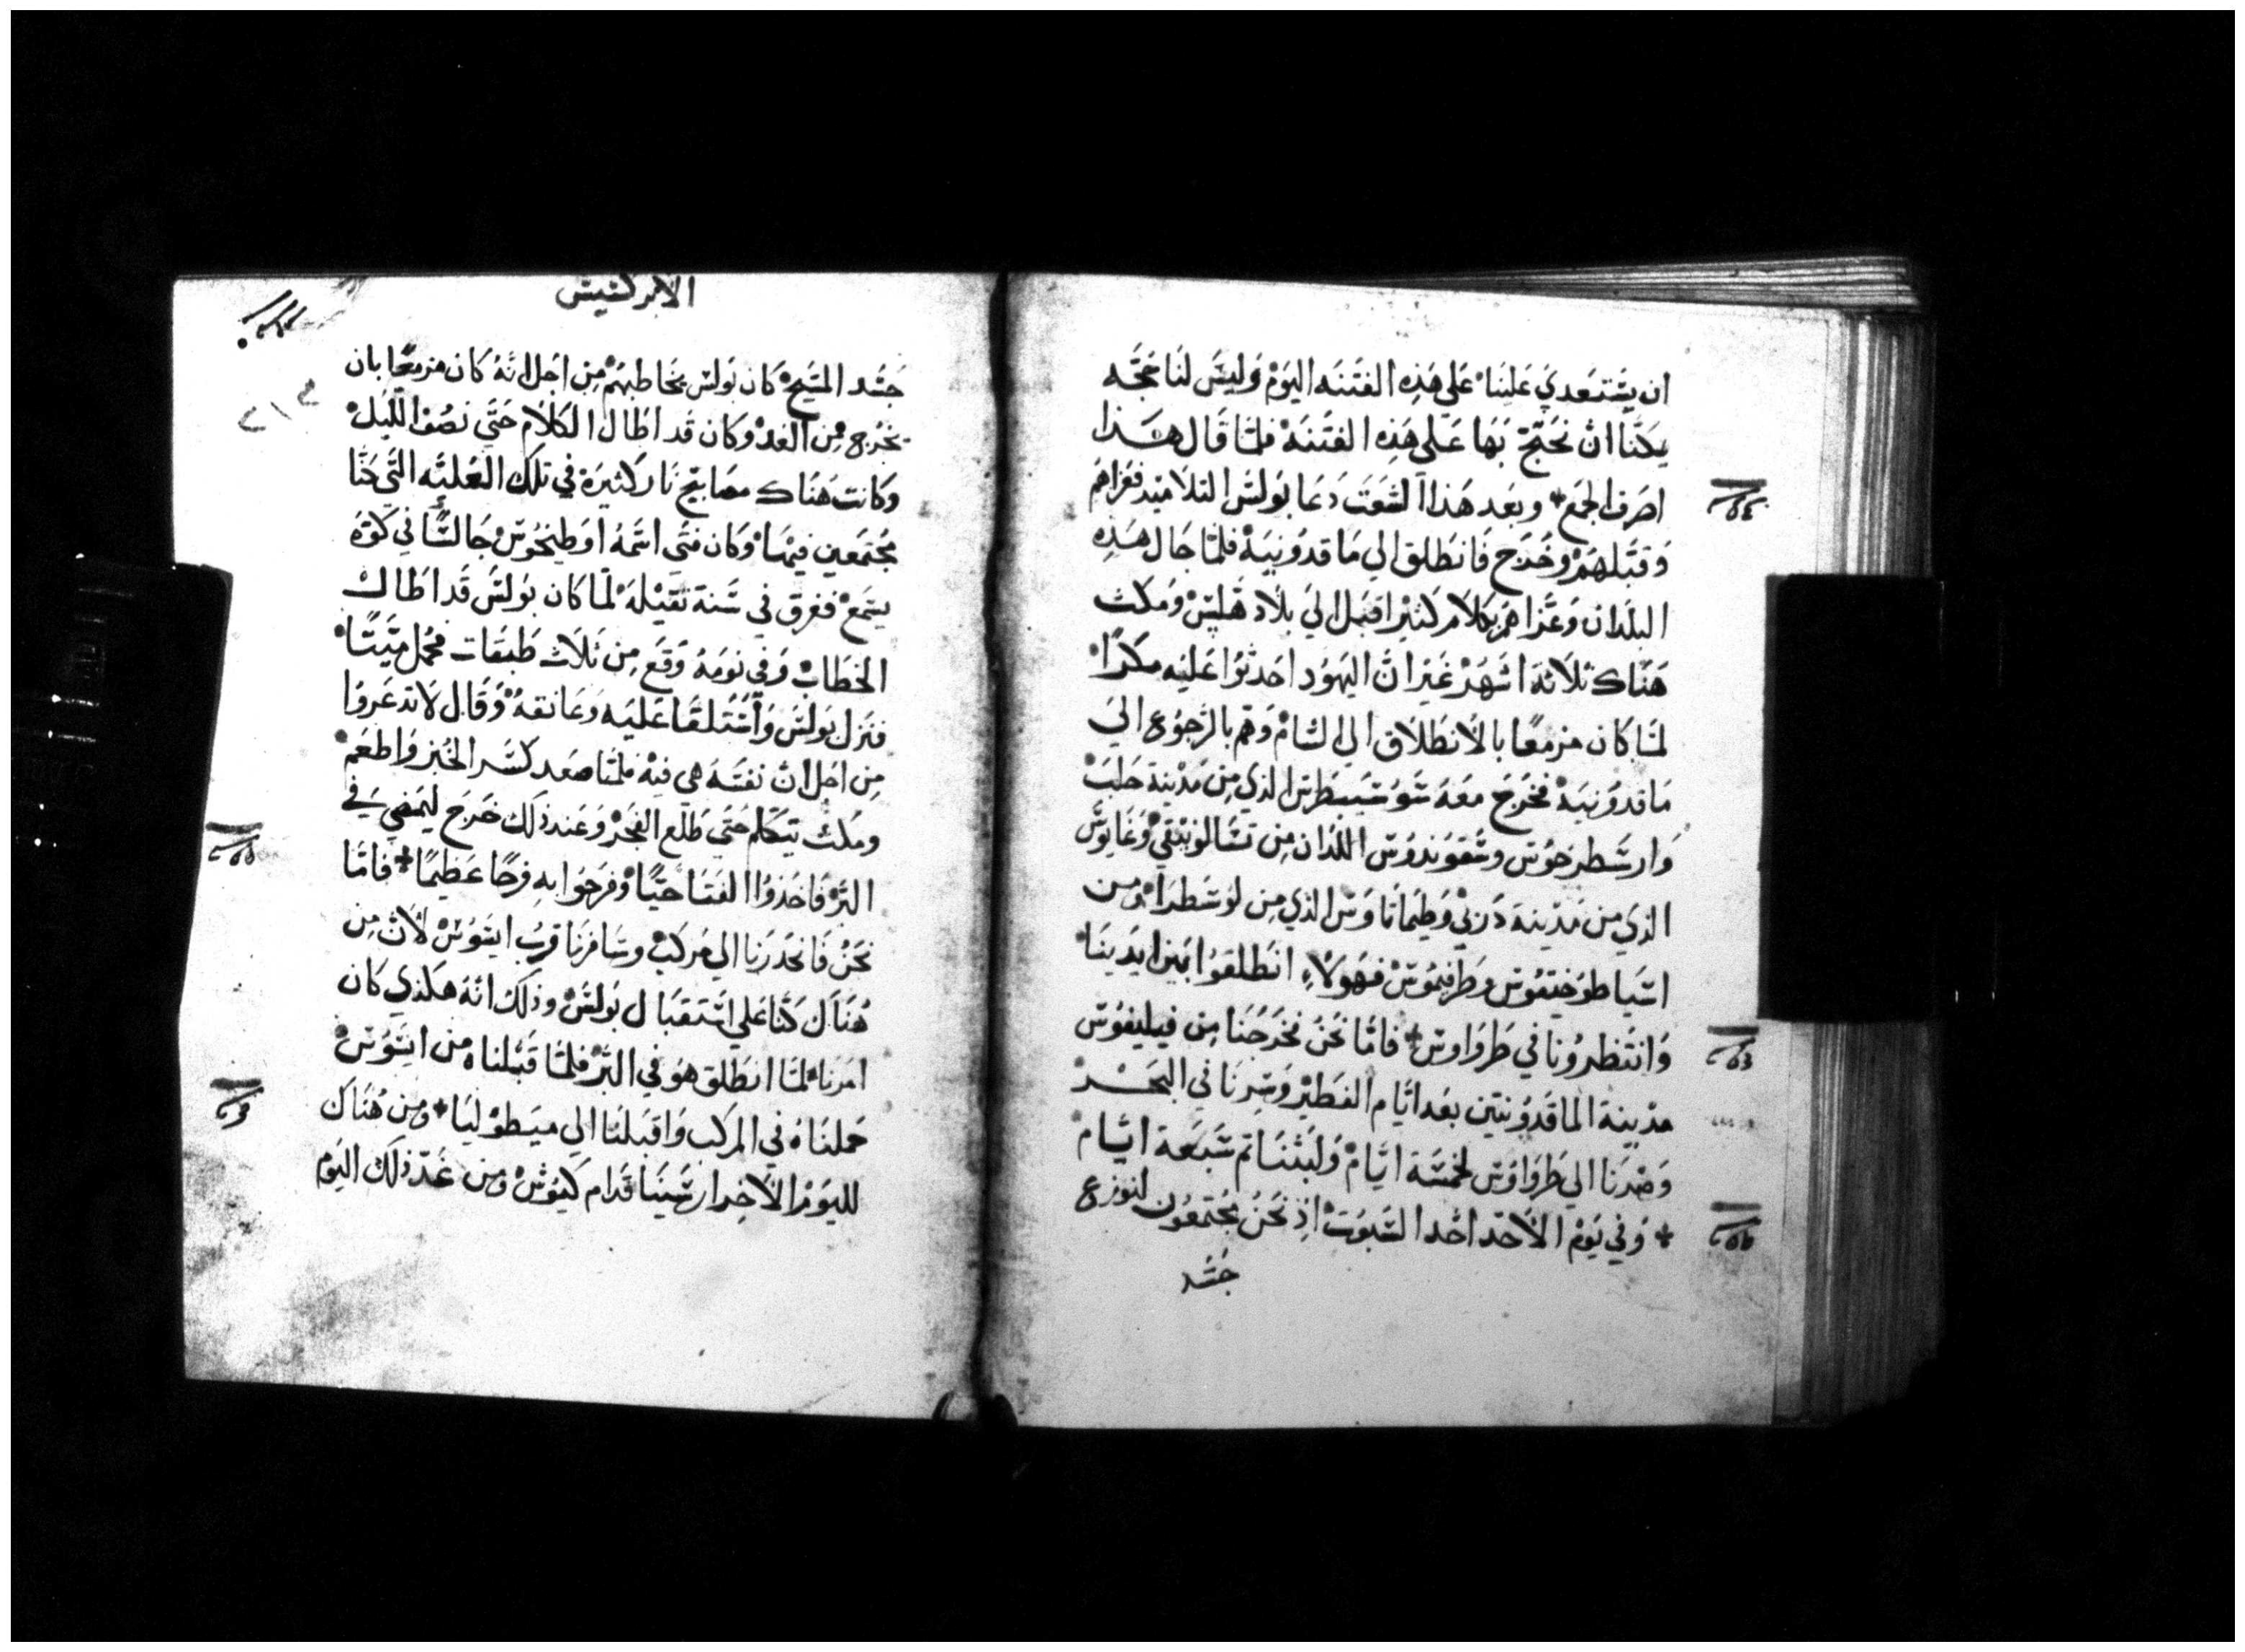 ان يستعدي علينا على هذه الفتنه اليوم وليس لنا حجه
يمكنا ان نحتج بها على هذه الفتنه فلما قال هذا
اصرف الجمع * وبعد هذا الشغت دعا بولس التلاميد فعزاهم
وقبلهم وخرج فانطلق الي ماقدونيه فلما جال هذه
البلدان وعزاهم بكلام كثير اقبل الي بلاد هلس ومكث
هناك ثلاثة اشهر غير ان اليهود احدثوا عليه مكرا
لما كان مزمعا بالانطلاق الي الشام وهم بالرجوع الي
ماقدونيه فخرج معه الذي من مدينة حلب
وارسطرخوس وسقوندوس اللدان من تسالونيقي وغايوس
الذي من مدينة دربي وطيماتاوس الذي من لوسطرا ومن
اسيا طوخيقوس وطرفيموس فهولاء انطلقوا بين ايدينا
وانتظرونا في طرواوس * فاما نحن فخرجنا من فيليفوس
مدينة الماقدونيين بعد ايام الفطير وسرنا في البحر
وصرنا الي طرواوس لخمسة ايام ولبثنا تم سبعة ايام
* وفي يوم الاحد احد السبوت اذ نحن مجتمعون لنوزع
جسد
الابركسيس
جسد المسيح كان بولس يخاطبهم من اجل انه كان مزمعا بان
يخرج من الغد وكان قد اطال الكلام حتي نصف الليل
وكانت هناك مصابيح نار كثيرة في تلك العليه التي كنا
مجتمعين فيها وكان فتى اسمه اوطيخوس جالسا في كوة
يسمع فغرق في سنة ثقيله لما كان بولس قد اطال
الخطاب وفي نومه وقع من ثلاث طبقات فحمل ميتا
فنزل بولس واستلقا عليه وعانقه وقال لا تدعروا
من اجل ان نفسه هي فيه فلما صعد كسر الخبز واطعم
ومكث يتكلم حتي طلع الفجر وعند ذلك خرج ليمضي في
البر فاخذوا الفتا حيا وفرحوا به فرحا عظيما * فاما
نحن فانحدرنا الي مركب وسافرنا قرب ايسوس لان من
هناك كنا على استقبال بولس وذلك انه هكذي كان
امرنا لما انطلق هو في البر فلما قبلناه من ايسوس
حملناه في المركب واقبلنا الي ميسطوليا * ومن هناك
لليوم الاخر ارسينا قدام كيوس ومن غد ذلك اليوم